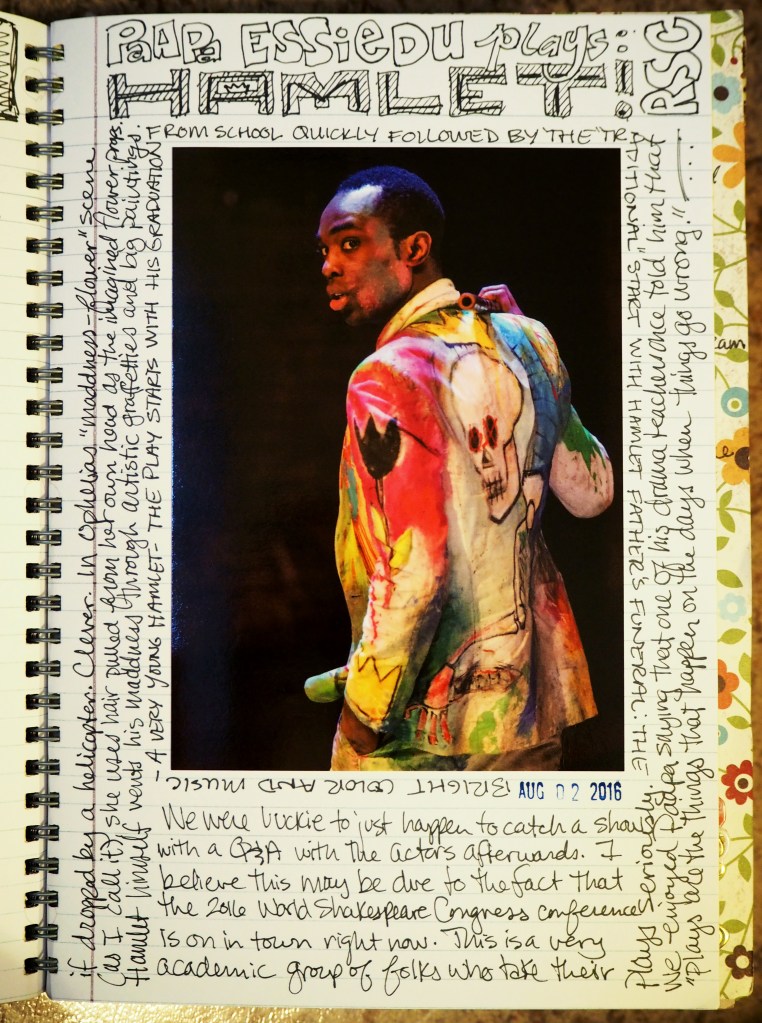 PAAPA ESSIEDU plays:
HAMLET!
RSC
- A VERY YOUNG HAMLET - THE PLAY STARTS WITH HIS GRADUATION
FROM SCHOOL QUICKLY FOLLOWED BY THE "TR
ADITIONAL" START WITH HAMLET FATHER'S FUNERAL: THE -
BRIGHT COLOR AND MUSIC
AUG 02 2016
We were luckie to just happen to catch a show
with a Q&A with the actors afterwards. I
believe this may be due to the fact that
the 2016 World Shakespeare Congress conference
is on in town right now. This is a very
academic group of folks who take their
Plays seriously.
We enjoyed Paapa saying that one of his drama teachers once told him that
"Plays are the things that happen on the days when things go wrong." ....
if dropped by a helicopter. Clever. In Ophelias "maddness-flower" scene
(as I call it), she uses hair pulled from her own head as the imagined flower props.
Hamlet himself vents his maddness through artistic graffetties and big paintings.
cam
e